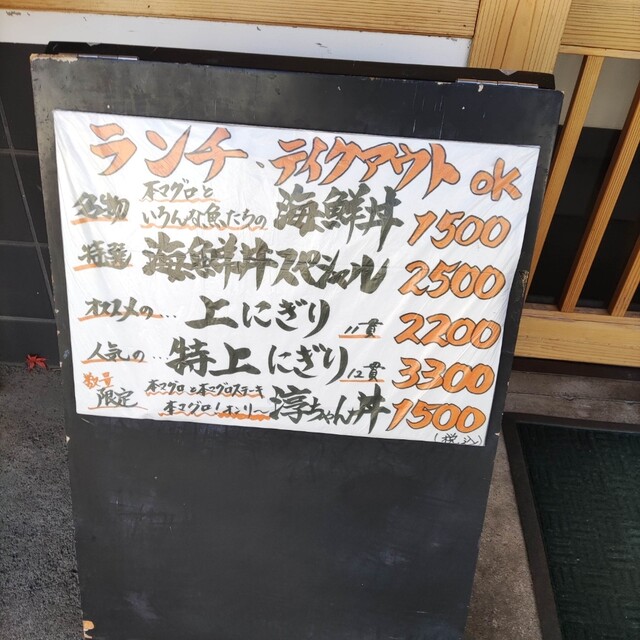 ランチ、テイクアウト OK
名物 本マグロと
いろんな魚たちの 海鮮丼 1500
特選 海鮮丼スペシャル 2500
オススメの… 上にぎり 11貫 2200
人気しの… 特上にぎり 12貫 3300
数量
限定 本マグロと本マグロステーキ
本マグロ!オンリー 淳ちゃん丼 1500
(税込)